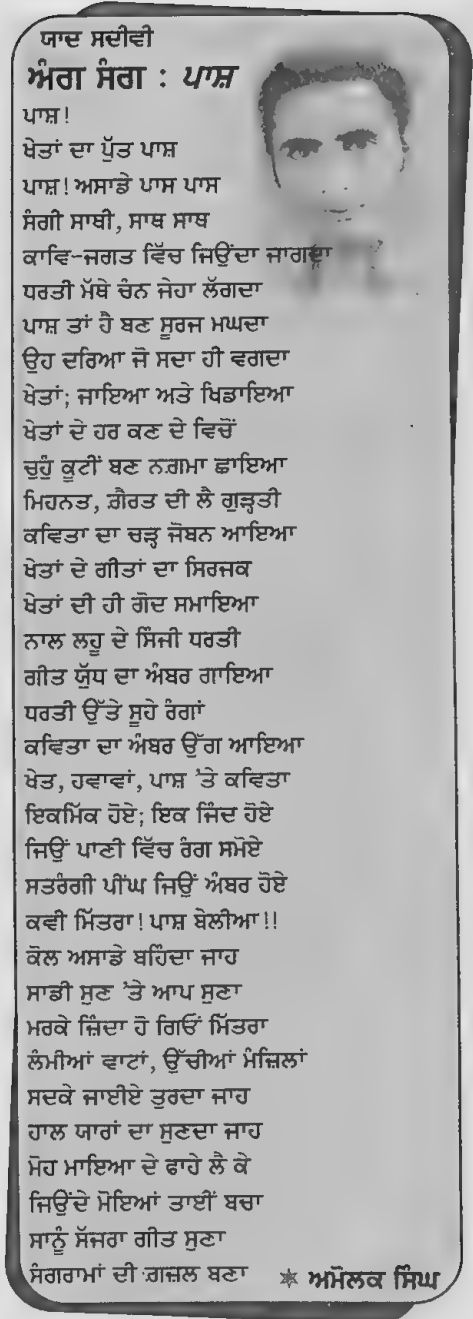 ਯਾਦ ਸਦੀਵੀ
ਅੰਗ ਸੰਗ : ਪਾਸ਼
ਪਾਸ਼!
ਖੇਤਾਂ ਦਾ ਪੁੱਤ ਪਾਸ਼
ਪਾਸ਼! ਅਸਾਡੇ ਪਾਸ ਪਾਸ
ਸੰਗੀ ਸਾਥੀ, ਸਾਥ ਸਾਥ
ਕਾਵਿ-ਜਗਤ ਵਿੱਚ ਜਿਉਂਦਾ ਜਾਗਦਾ
ਧਰਤੀ ਮੱਥੇ ਚੰਨ ਜੇਹਾ ਲੱਗਦਾ
ਪਾਸ਼ ਤਾਂ ਹੈ ਬਣ ਸੂਰਜ ਮਘਦਾ
ਉਹ ਦਰਿਆ ਜੋ ਸਦਾ ਹੀ ਵਗਦਾ
ਖੇਤਾਂ; ਜਾਇਆ ਅਤੇ ਖਿਡਾਇਆ
ਖੇਤਾਂ ਦੇ ਹਰ ਕਣ ਦੇ ਵਿਚੋਂ
ਚੁਹੁੰ ਕੂਟੀਂ ਬਣ ਨਗ਼ਮਾ ਛਾਇਆ
ਮਿਹਨਤ, ਗ਼ੈਰਤ ਦੀ ਲੈ ਗੁੜ੍ਹਤੀ
ਕਵਿਤਾ ਦਾ ਚੜ੍ਹ ਜੋਬਨ ਆਇਆ
ਖੇਤਾਂ ਦੇ ਗੀਤਾਂ ਦਾ ਸਿਰਜਕ
ਖੇਤਾਂ ਦੀ ਹੀ ਗੋਦ ਸਮਾਇਆ
ਨਾਲ ਲਹੂ ਦੇ ਸਿੰਜੀ ਧਰਤੀ
ਗੀਤ ਯੁੱਧ ਦਾ ਅੰਬਰ ਗਾਇਆ
ਧਰਤੀ ਉੱਤੇ ਸੂਹੇ ਰੰਗਾਂ
ਕਵਿਤਾ ਦਾ ਅੰਬਰ ਉੱਗ ਆਇਆ
ਖੇਤ, ਹਵਾਵਾਂ, ਪਾਸ਼ 'ਤੇ ਕਵਿਤਾ
ਇਕਮਿੱਕ ਹੋਏ; ਇਕ ਜਿੰਦ ਹੋਏ
ਜਿਉਂ ਪਾਣੀ ਵਿੱਚ ਰੰਗ ਸਮੋਏ
ਸਤਰੰਗੀ ਪੀਂਘ ਜਿਉਂ ਅੰਬਰ ਹੋਏ
ਕਵੀ ਮਿੱਤਰਾ! ਪਾਸ਼ ਬੇਲੀਆ!!
ਕੋਲ ਅਸਾਡੇ ਬਹਿੰਦਾ ਜਾਹ
ਸਾਡੀ ਸੁਣ 'ਤੇ ਆਪ ਸੁਣਾ
ਮਰਕੇ ਜ਼ਿੰਦਾ ਹੋ ਗਿਓਂ ਮਿੱਤਰਾ
ਲੰਮੀਆਂ ਵਾਟਾਂ, ਉੱਚੀਆਂ ਮੰਜ਼ਿਲਾਂ
ਸਦਕੇ ਜਾਈਏ ਤੁਰਦਾ ਜਾਹ
ਹਾਲ ਯਾਰਾਂ ਦਾ ਸੁਣਦਾ ਜਾਹ
ਮੋਹ ਮਾਇਆ ਦੇ ਫਾਹੇ ਲੈ ਕੇ
ਜਿਉਂਦੇ ਮੋਇਆਂ ਤਾਈਂ ਬਚਾ
ਸਾਨੂੰ ਸੱਜਰਾ ਗੀਤ ਸੁਣਾ
ਸੰਗਰਾਮਾਂ ਦੀ ਗ਼ਜ਼ਲ ਬਣਾ ✵ ਅਮੋਲਕ ਸਿੰਘ